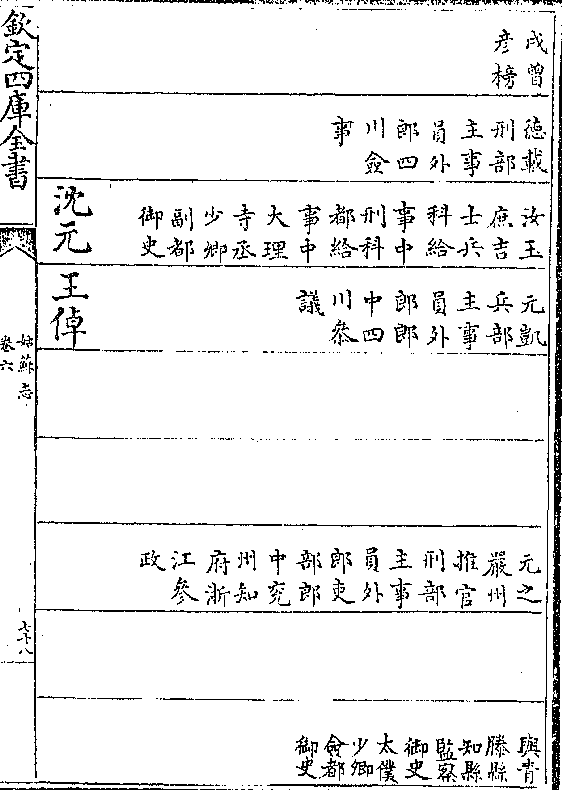 戌曾彥榜
德載刑部主事員外郎四川僉事
汝玉庶吉士兵科給事中刑科都給事中大理寺丞少卿副都御史
元凱兵部主事員外郎郎中四川參議
元之嚴州推官刑部主事員外郎吏部郎中兗州知府浙江參政
與青滕縣知縣監察御史太僕少卿僉都御史
沈元
王倬
欽定四庫全書
姑蘇志
卷六
七十八